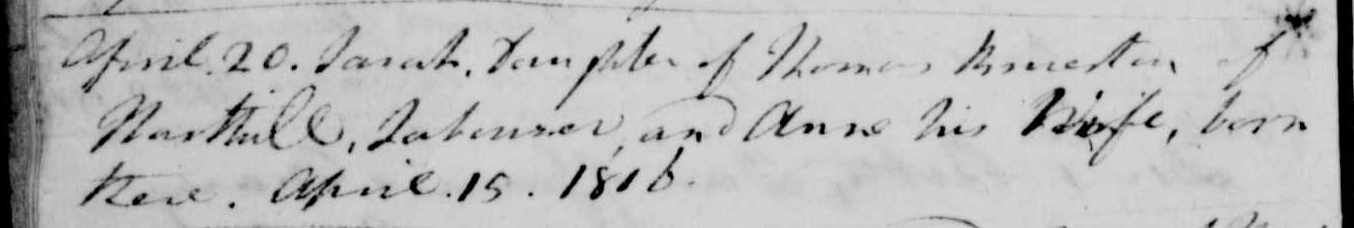 April. 20. Sarah, Daughter of Thomas of
Northill, Labourer, and Anne his Wife, born
there. April. 15. 1816.